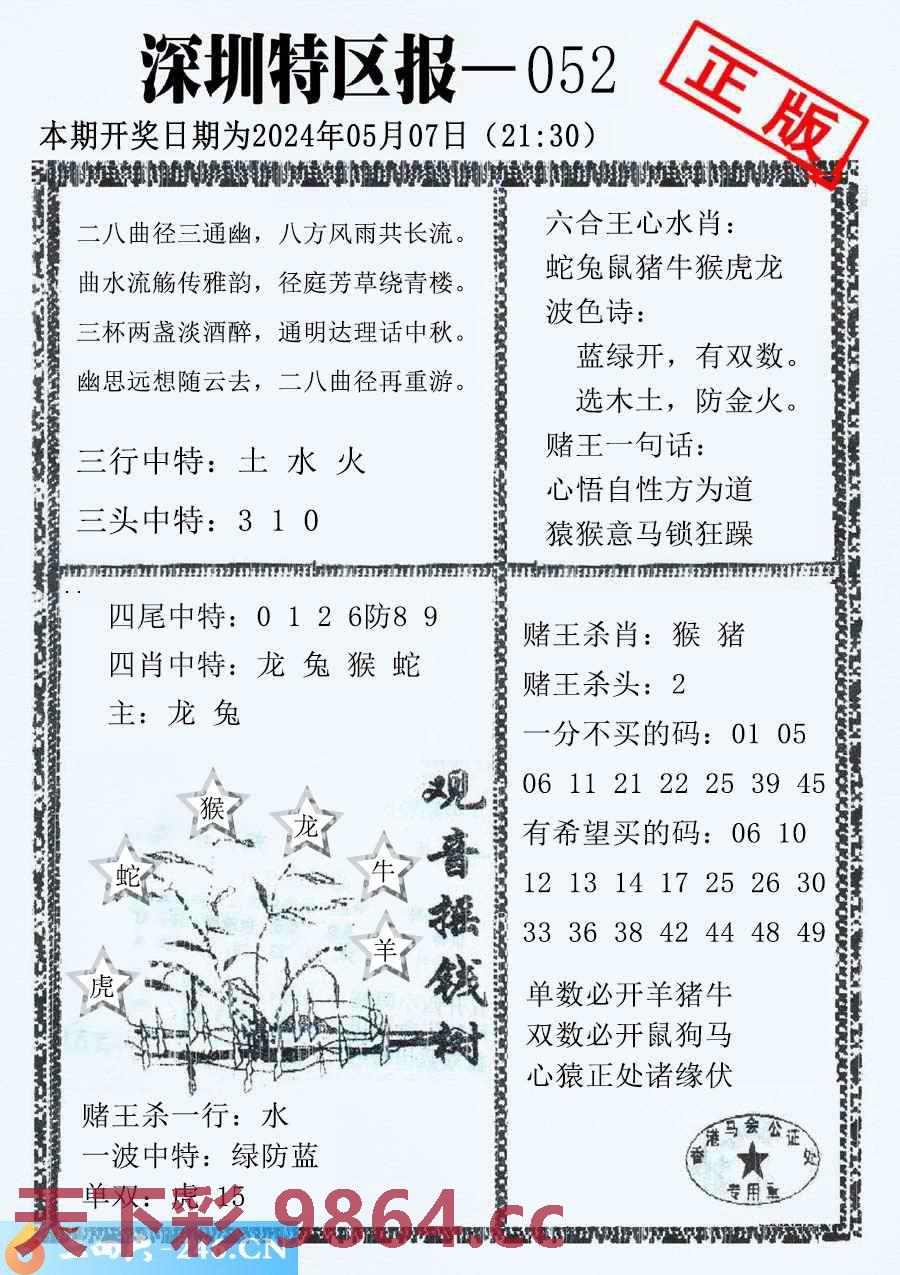 深圳特区报—052
正版
本期开奖日期为2024年05月07日（21:30）
二八曲径三通幽，八方风雨共长流。
曲水流觞传雅韵，径庭芳草绕青楼。
三杯两盏淡酒醉，通明达理话中秋。
幽思远想随云去，二八曲径再重游。
三行中特：土 水 火
三头中特：3 1 0
六合王心水肖：
蛇兔鼠猪牛猴虎龙
波色诗：
蓝绿开，有双数。
选木土，防金火。
赌王一句话：
心悟自性方为道
猿猴意马锁狂躁
四尾中特：0 1 2 6防8 9
四肖中特：龙 兔 猴 蛇
主：龙 兔
观音摇钱树
猴
龙
蛇
牛
羊
虎
赌王杀一行：水
一波中特：绿防蓝
单双：虎 15
赌王杀肖：猴 猪
赌王杀头：2
一分不买的码：01 05
06 11 21 22 25 39 45
有希望买的码：06 10
12 13 14 17 25 26 30
33 36 38 42 44 48 49
单数必开羊猪牛
双数必开鼠狗马
心猿正处诸缘伏
香港马会公证处
专用章
天下彩 9864.cc